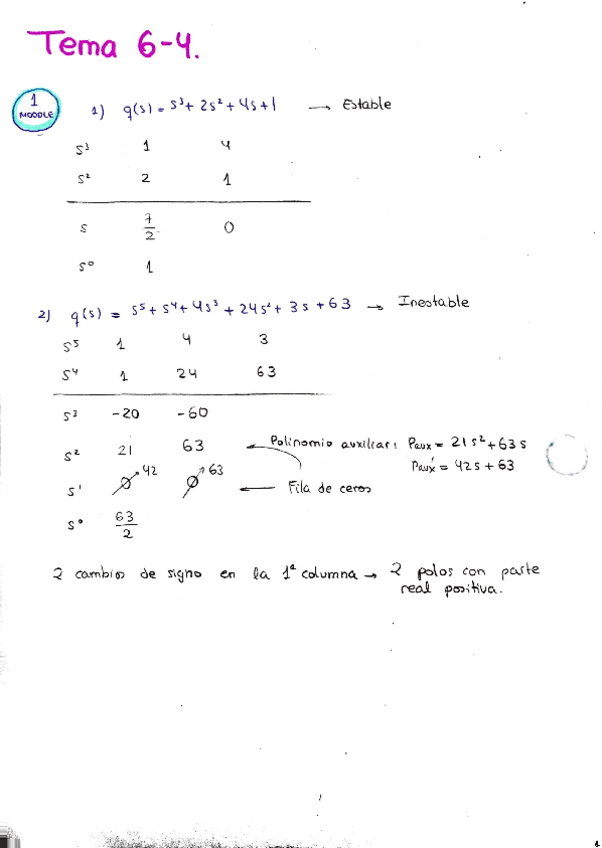 Tema 6-4.
1 MOODLE
1) q(s) = s³ + 2s² + 4s + 1 → Estable
s³ 1 4
s² 2 1
s 7/2 0
s⁰ 1
2) q(s) = s⁵ + s⁴ + 4s³ + 24s² + 3s + 63 → Inestable
s⁵ 1 4 3
s⁴ 1 24 63
s³ -20 -60
s² 21 63 ← Polinomio auxiliar: Paux = 21s² + 63s
Paux' = 42s + 63
s¹ 0 ↗ 42 0 ↗ 63 ← Fila de ceros
s⁰ 63/2
2 cambios de signo en la 1ª columna → 2 polos con parte
real positiva.
1